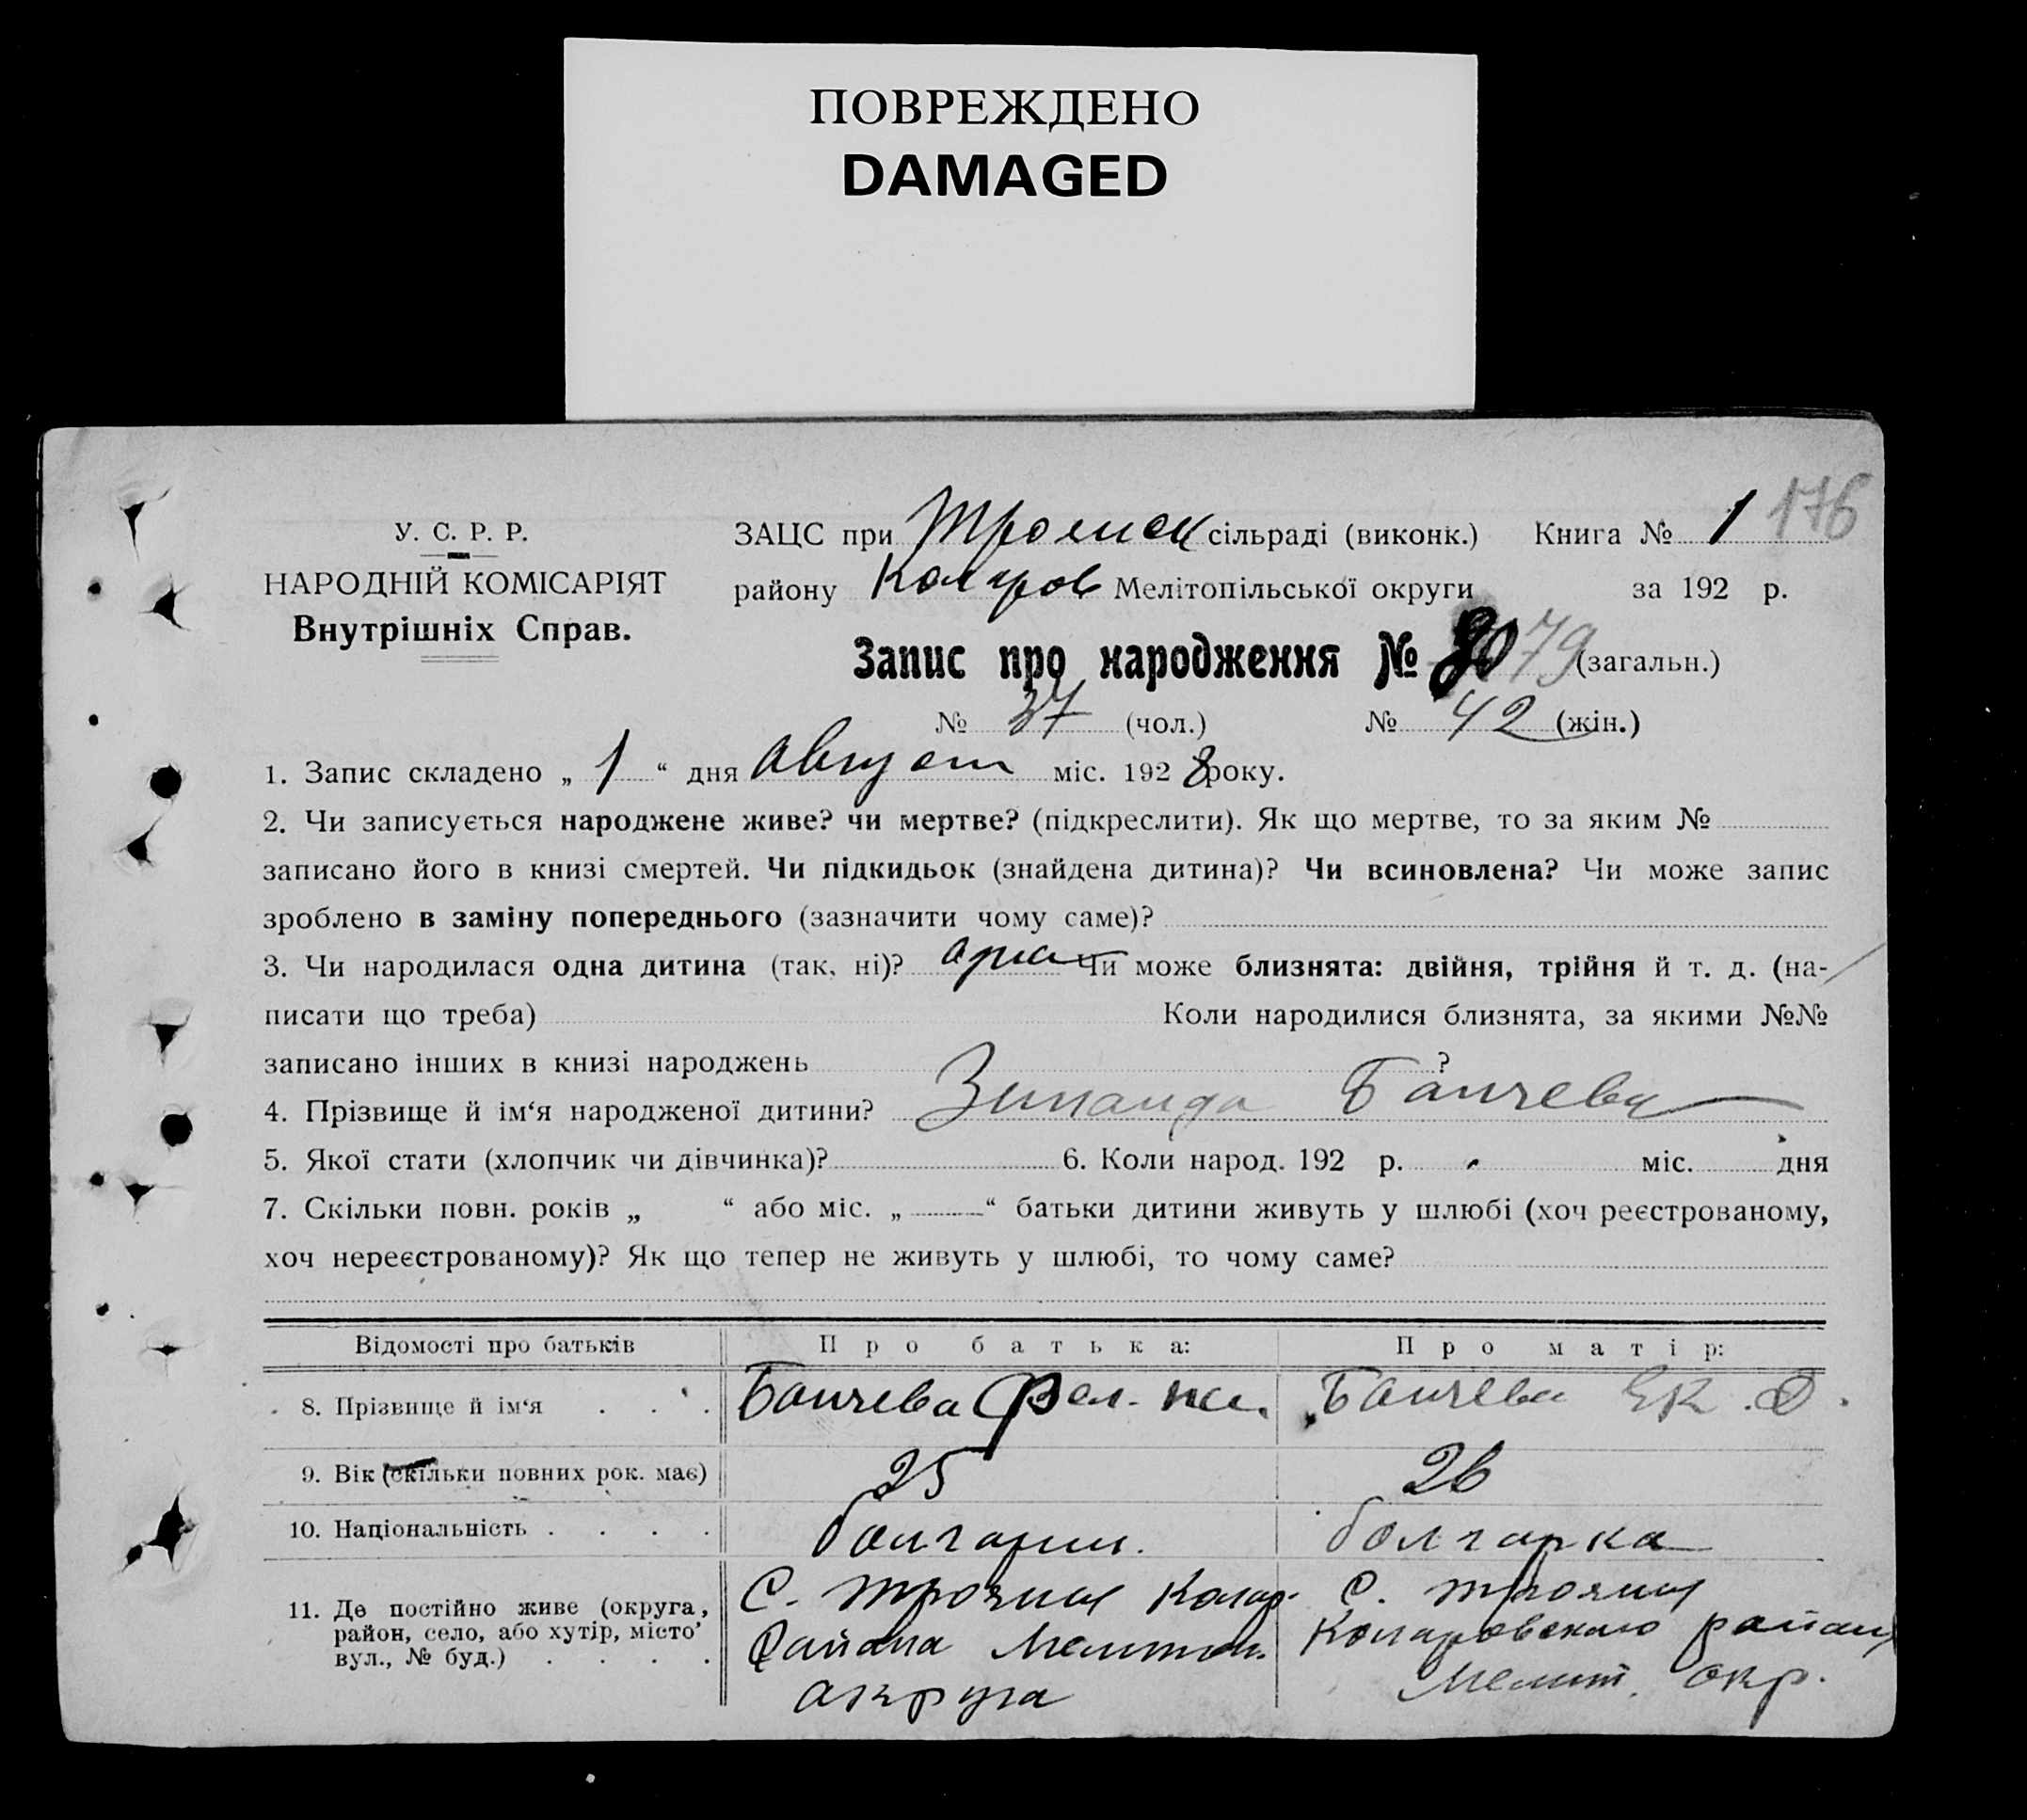 ПОВРЕЖДЕНО
DAMAGED
176
У. С. Р. Р.
НАРОДНІЙ КОМІСАРІЯТ
Внутрішніх Справ.
ЗАЦС при сільраді (виконк.) Книга № 1
району Коларов Мелітопільської округи за 192 р.
Запис про народження № 80 79 (загальн.)
№ 37 (чол.) № 42 (жін.)
1. Запис складено „ 1 “ дня Август міс. 192 8 року.
2. Чи записується народжене живе? чи мертве? (підкреслити). Як що мертве, то за яким №
записано його в книзі смертей. Чи підкидьок (знайдена дитина)? Чи всиновлена? Чи може запис
зроблено в заміну попереднього (зазначити чому саме)?
3. Чи народилася одна дитина (так, ні)? Чи може близнята: двійня, трійня й т. д. (на-
писати що треба) Коли народилися близнята, за якими №№
записано інших в книзі народжень ?
4. Прізвище й ім‘я народженої дитини? Зинаида Банчева
5. Якої стати (хлопчик чи дівчинка)? 6. Коли народ. 192 р. міс. дня
7. Скільки повн. років „ “ або міс. „ “ батьки дитини живуть у шлюбі (хоч реєстрованому,
хоч нереєстрованому)? Як що тепер не живуть у шлюбі, то чому саме?
Відомості про батьків Про батька: Про матір:
8. Прізвище й ім‘я . . . Банчева Банчева Ек. Д.
9. Вік (скільки повних рок. має) 25 26
10. Національність . . . . болгарин. болгарка
11. Де постійно живе (округа, С. Троян Колар. С. Трояны
район, село, або хутір, місто’ района Мелитоп. Коларовскаго района
вул., № буд.) . . . . акруга Мелит. окр.